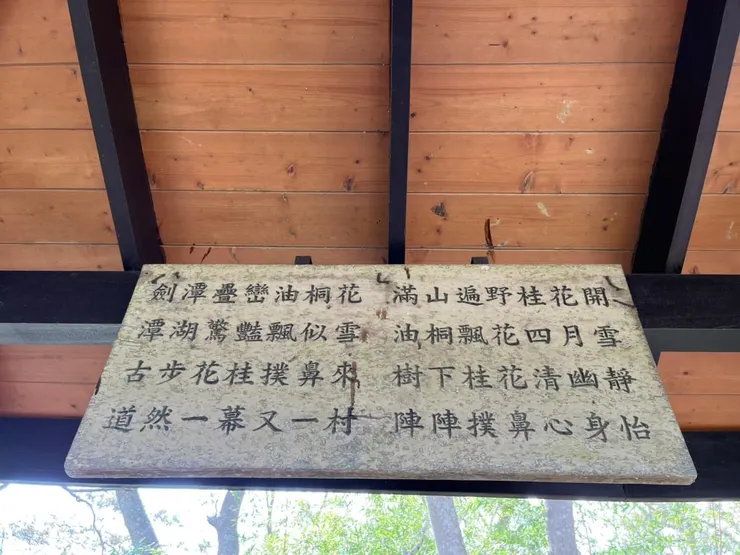 劍潭疊巒油桐花
潭湖驚豔飄似雪
古步花桂撲鼻來
道然一幕又一村
滿山遍野桂花開
油桐飄花四月雪
樹下桂花清幽靜
陣陣撲鼻心身怡